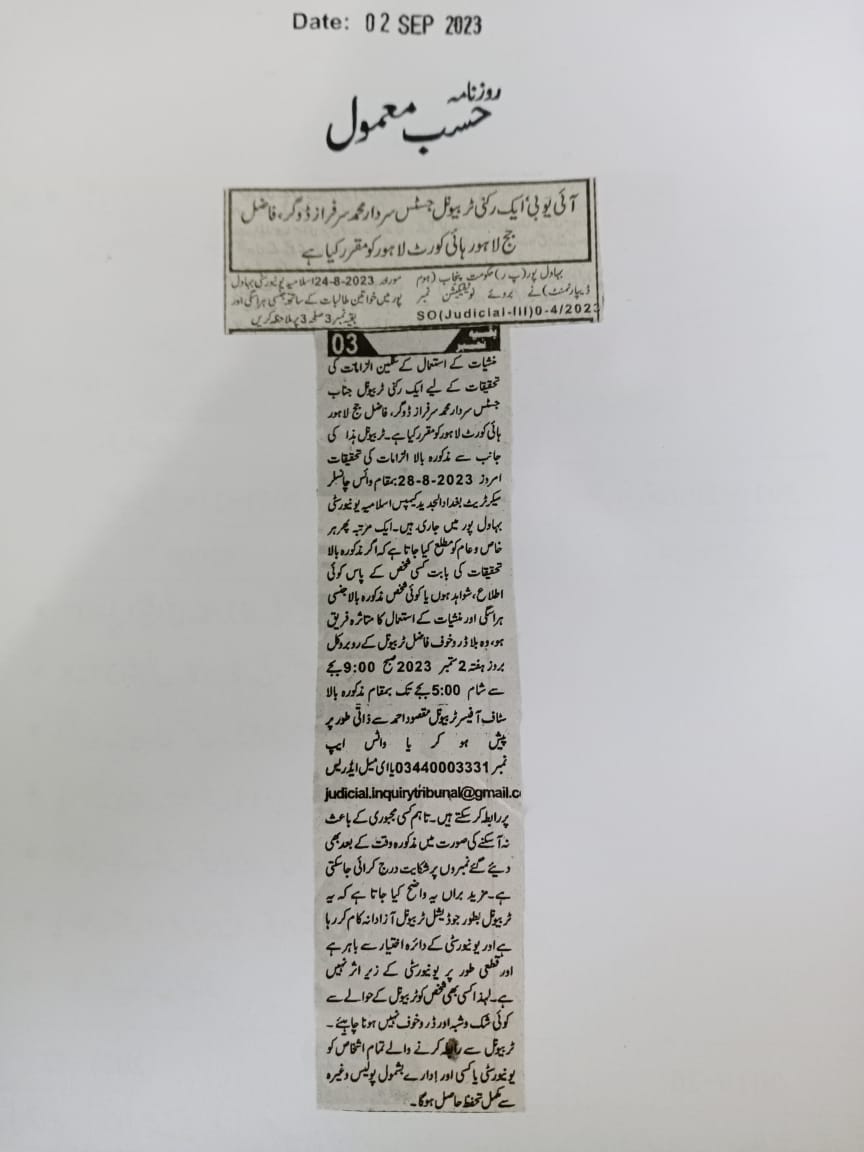 Date: 02 SEP 2023
روزنامہ
حسب معمول
آئی یو بی؛ ایک رکنی ٹربیونل جسٹس سردار محمد سرفراز ڈوگر، فاضل
جج لاہور ہائی کورٹ لاہور کو مقرر کیا ہے
بہاول پور (پ ر) حکومت پنجاب (ہوم
ڈیپارٹمنٹ) نے بروئے نوٹیفکیشن نمبر
SO(Judicial-III)0-4/2023
مورخہ 24-8-2023 اسلامیہ یونیورسٹی بہاول
پور میں خواتین طالبات کے ساتھ جنسی ہراسگی اور
بقیہ نمبر 3 صفحہ 3 پر ملاحظہ کریں
بقیہ نمبر 03
منشیات کے استعمال کے سنگین الزامات کی
تحقیقات کے لیے ایک رکنی ٹربیونل جناب
جسٹس سردار محمد سرفراز ڈوگر، فاضل جج لاہور
ہائی کورٹ لاہور کو مقرر کیا ہے۔ ٹربیونل ہذا کی
جانب سے مذکورہ بالا الزامات کی تحقیقات
امروز 28-8-2023 بمقام وائس چانسلر
سیکرٹریٹ بغداد الجدید کیمپس اسلامیہ یونیورسٹی
بہاول پور میں جاری ہیں۔ ایک مرتبہ پھر ہر
خاص و عام کو مطلع کیا جاتا ہے کہ اگر مذکورہ بالا
تحقیقات کی بابت کسی شخص کے پاس کوئی
اطلاع، شواہد ہوں یا کوئی شخص مذکورہ بالا جنسی
ہراسگی اور منشیات کے استعمال کا متاثرہ فریق
ہو، وہ بلا ڈر و خوف فاضل ٹربیونل کے روبرو کل
بروز ہفتہ 2 ستمبر 2023 صبح 9:00 بجے
سے شام 5:00 بجے تک بمقام مذکورہ بالا
سٹاف آفیسر ٹربیونل مقصود احمد سے ذاتی طور پر
پیش ہو کر یا واٹس ایپ
نمبر 03440003331 یا ای میل ایڈریس
judicial.inquirytribunal@gmail.c
پر رابطہ کر سکتے ہیں۔ تاہم کسی مجبوری کے باعث
نہ آ سکنے کی صورت میں مذکورہ وقت کے بعد بھی
دیئے گئے نمبروں پر شکایت درج کرائی جا سکتی
ہے۔ مزید براں یہ واضح کیا جاتا ہے کہ یہ
ٹربیونل بطور جوڈیشل ٹربیونل آزادانہ کام کر رہا
ہے اور یونیورسٹی کے دائرہ اختیار سے باہر ہے
اور قطعی طور پر یونیورسٹی کے زیر اثر نہیں
ہے۔ لہذا کسی بھی شخص کو ٹربیونل کے حوالے سے
کوئی شک و شبہ اور ڈر و خوف نہیں ہونا چاہئے۔
ٹربیونل سے رابطہ کرنے والے تمام اشخاص کو
یونیورسٹی یا کسی اور ادارے بشمول پولیس وغیرہ
سے مکمل تحفظ حاصل ہوگا۔